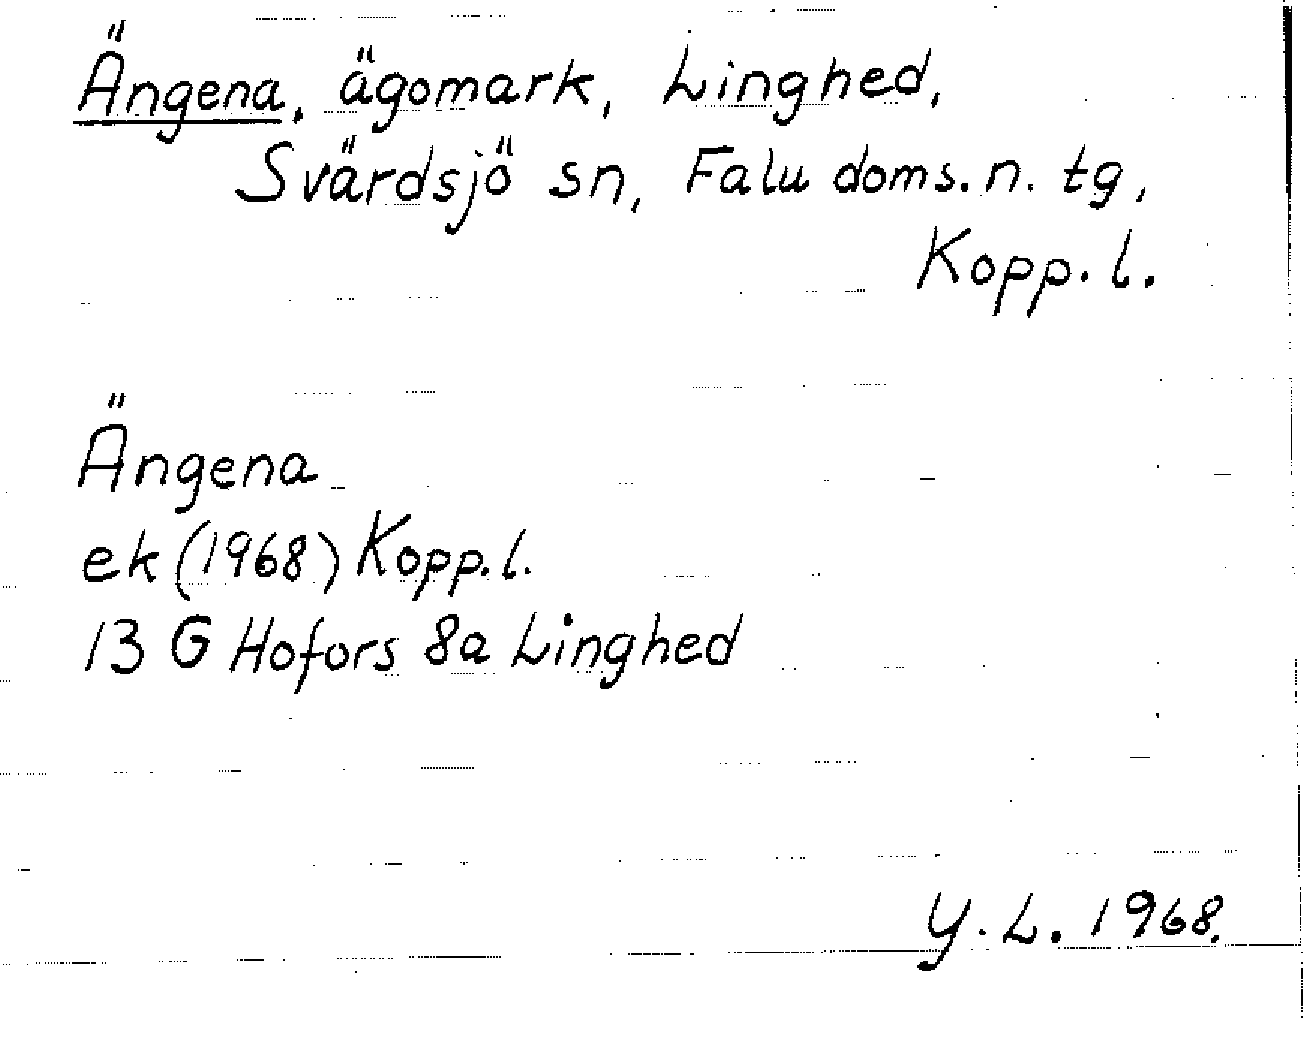 Ängena, ägomark, Linghed,
Svärdsjö sn, Falu doms. n. tg,
Kopp. l.
Ängena
ek (1968) Kopp. l.
13 G Hofors 8a Linghed
Y. L. 1968.